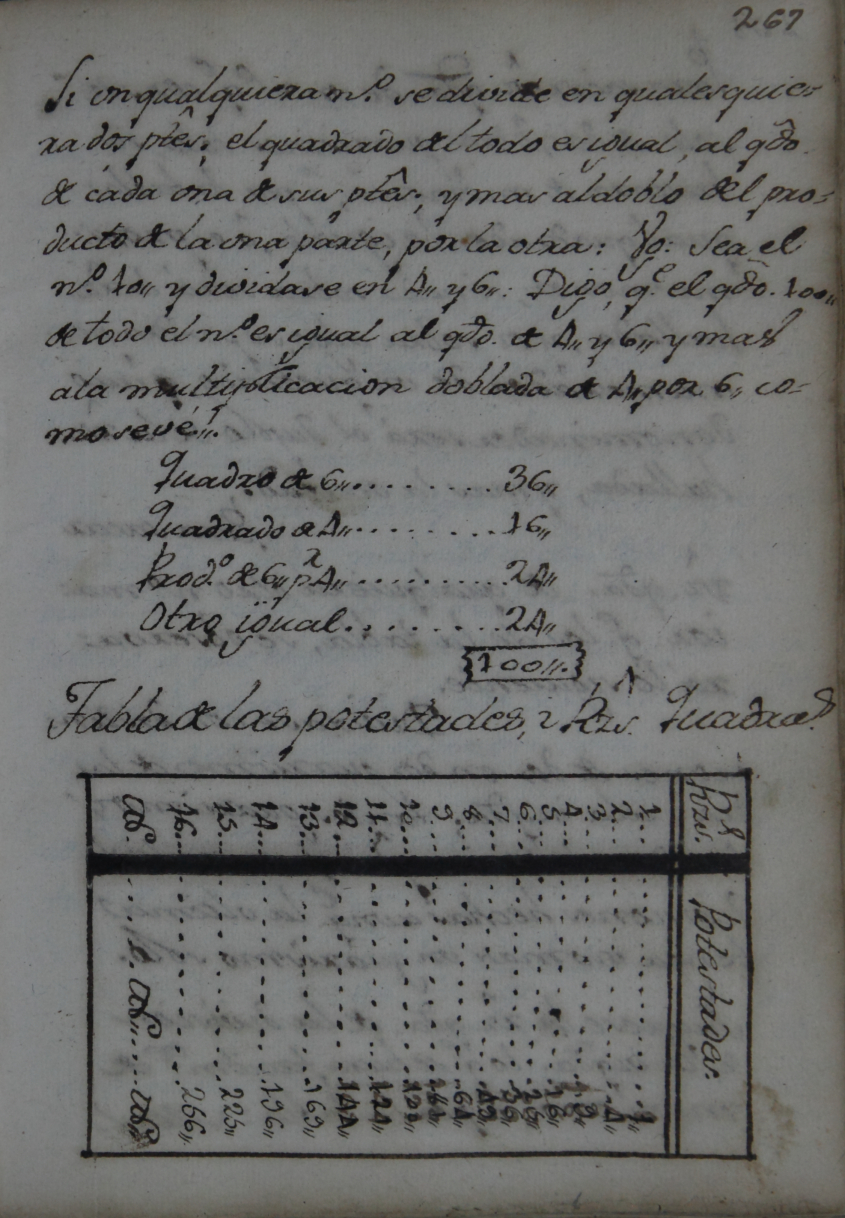 267
Si un qualquiera n.º se divide en qualesquie-
ra dos ptes. el quadrado del todo es igual, al qdo.
de cada una de sus ptes., y mas al doblo del pro-
ducto de la una parte, por la otra: Yo: Sea el
n.º 10,, y dividase en 4,, y 6,,: Digo, q.e el qdo. 100,,
de todo el n.º es igual al qdo. de 4,, y 6,, y mas
a la multiplicacion doblada de 4,, por 6,, co-
mo se vé.
Quadro de 6,,........36,,
Quadrado de 4,,........16,,
Prod.º de 6,, p.r 4,,.........24,,
Otro igual.........24,,
100,,.
Tabla de las potestades, i Rzs. Quadras
Rzs. Potestades.
1.......1,,
2.......4,,
3.......9,,
4.......16,,
5.......25,,
6.......36,,
7.......49,,
8.......64,,
9.......81,,
10.......100,,
11.......121,,
12.......144,,
13.......169,,
14.......196,,
15.......225,,
16.......256,,